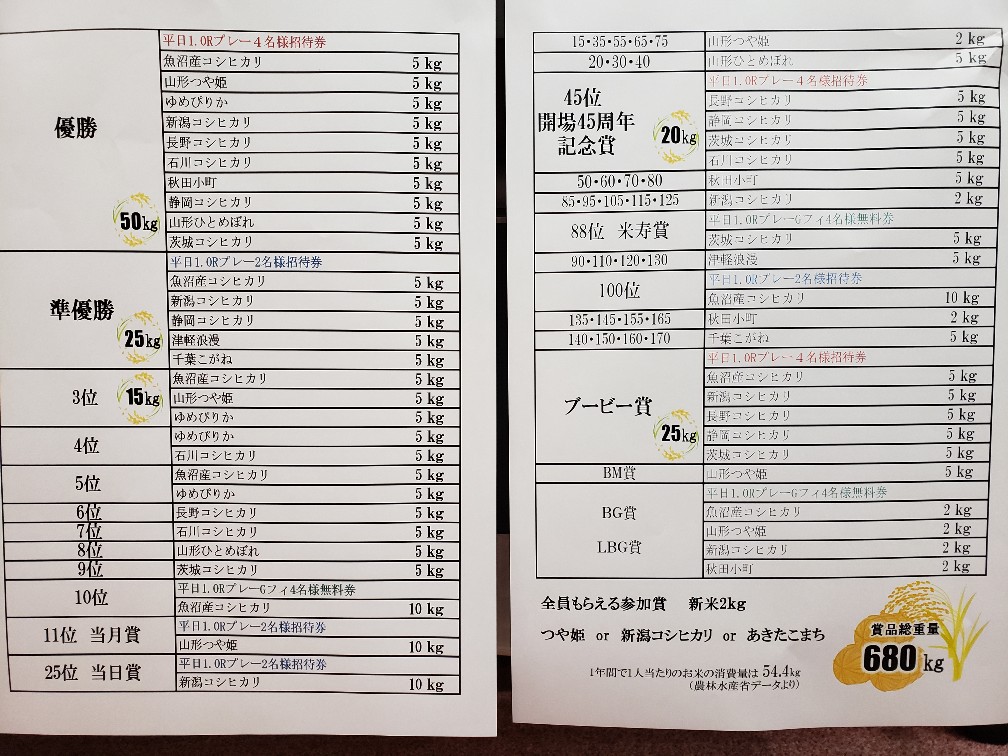 優勝
50kg
平日1.0Rプレー４名様招待券
魚沼産コシヒカリ 5 kg
山形つや姫 5 kg
ゆめぴりか 5 kg
新潟コシヒカリ 5 kg
長野コシヒカリ 5 kg
石川コシヒカリ 5 kg
秋田小町 5 kg
静岡コシヒカリ 5 kg
山形ひとめぼれ 5 kg
茨城コシヒカリ 5 kg
準優勝
25kg
平日1.0Rプレー2名様招待券
魚沼産コシヒカリ 5 kg
新潟コシヒカリ 5 kg
静岡コシヒカリ 5 kg
津軽浪漫 5 kg
千葉こがね 5 kg
3位 15kg
魚沼産コシヒカリ 5 kg
山形つや姫 5 kg
ゆめぴりか 5 kg
4位
ゆめぴりか 5 kg
石川コシヒカリ 5 kg
5位
魚沼産コシヒカリ 5 kg
ゆめぴりか 5 kg
6位 長野コシヒカリ 5 kg
7位 石川コシヒカリ 5 kg
8位 山形ひとめぼれ 5 kg
9位 茨城コシヒカリ 5 kg
10位
平日1.0RプレーGフィ4名様無料券
魚沼産コシヒカリ 10 kg
11位 当月賞
平日1.0Rプレー2名様招待券
山形つや姫 10 kg
25位 当日賞
平日1.0Rプレー2名様招待券
新潟コシヒカリ 10 kg
15・35・55・65・75 山形つや姫 2 kg
20・30・40 山形ひとめぼれ 5 kg
45位
開場45周年
記念賞
20kg
平日1.0Rプレー４名様招待券
長野コシヒカリ 5 kg
静岡コシヒカリ 5 kg
茨城コシヒカリ 5 kg
石川コシヒカリ 5 kg
50・60・70・80 秋田小町 5 kg
85・95・105・115・125 新潟コシヒカリ 2 kg
88位 米寿賞
平日1.0RプレーGフィ4名様無料券
茨城コシヒカリ 5 kg
90・110・120・130 津軽浪漫 5 kg
100位
平日1.0Rプレー2名様招待券
魚沼産コシヒカリ 10 kg
135・145・155・165 秋田小町 2 kg
140・150・160・170 千葉こがね 5 kg
ブービー賞
25kg
平日1.0Rプレー４名様招待券
魚沼産コシヒカリ 5 kg
新潟コシヒカリ 5 kg
長野コシヒカリ 5 kg
静岡コシヒカリ 5 kg
茨城コシヒカリ 5 kg
BM賞 山形つや姫 5 kg
BG賞
LBG賞
平日1.0RプレーGフィ4名様無料券
魚沼産コシヒカリ 2 kg
山形つや姫 2 kg
新潟コシヒカリ 2 kg
秋田小町 2 kg
全員もらえる参加賞 新米2kg
つや姫 or 新潟コシヒカリ or あきたこまち
賞品総重量
680kg
1年間で1人当たりのお米の消費量は 54.4kg
（農林水産省データより）